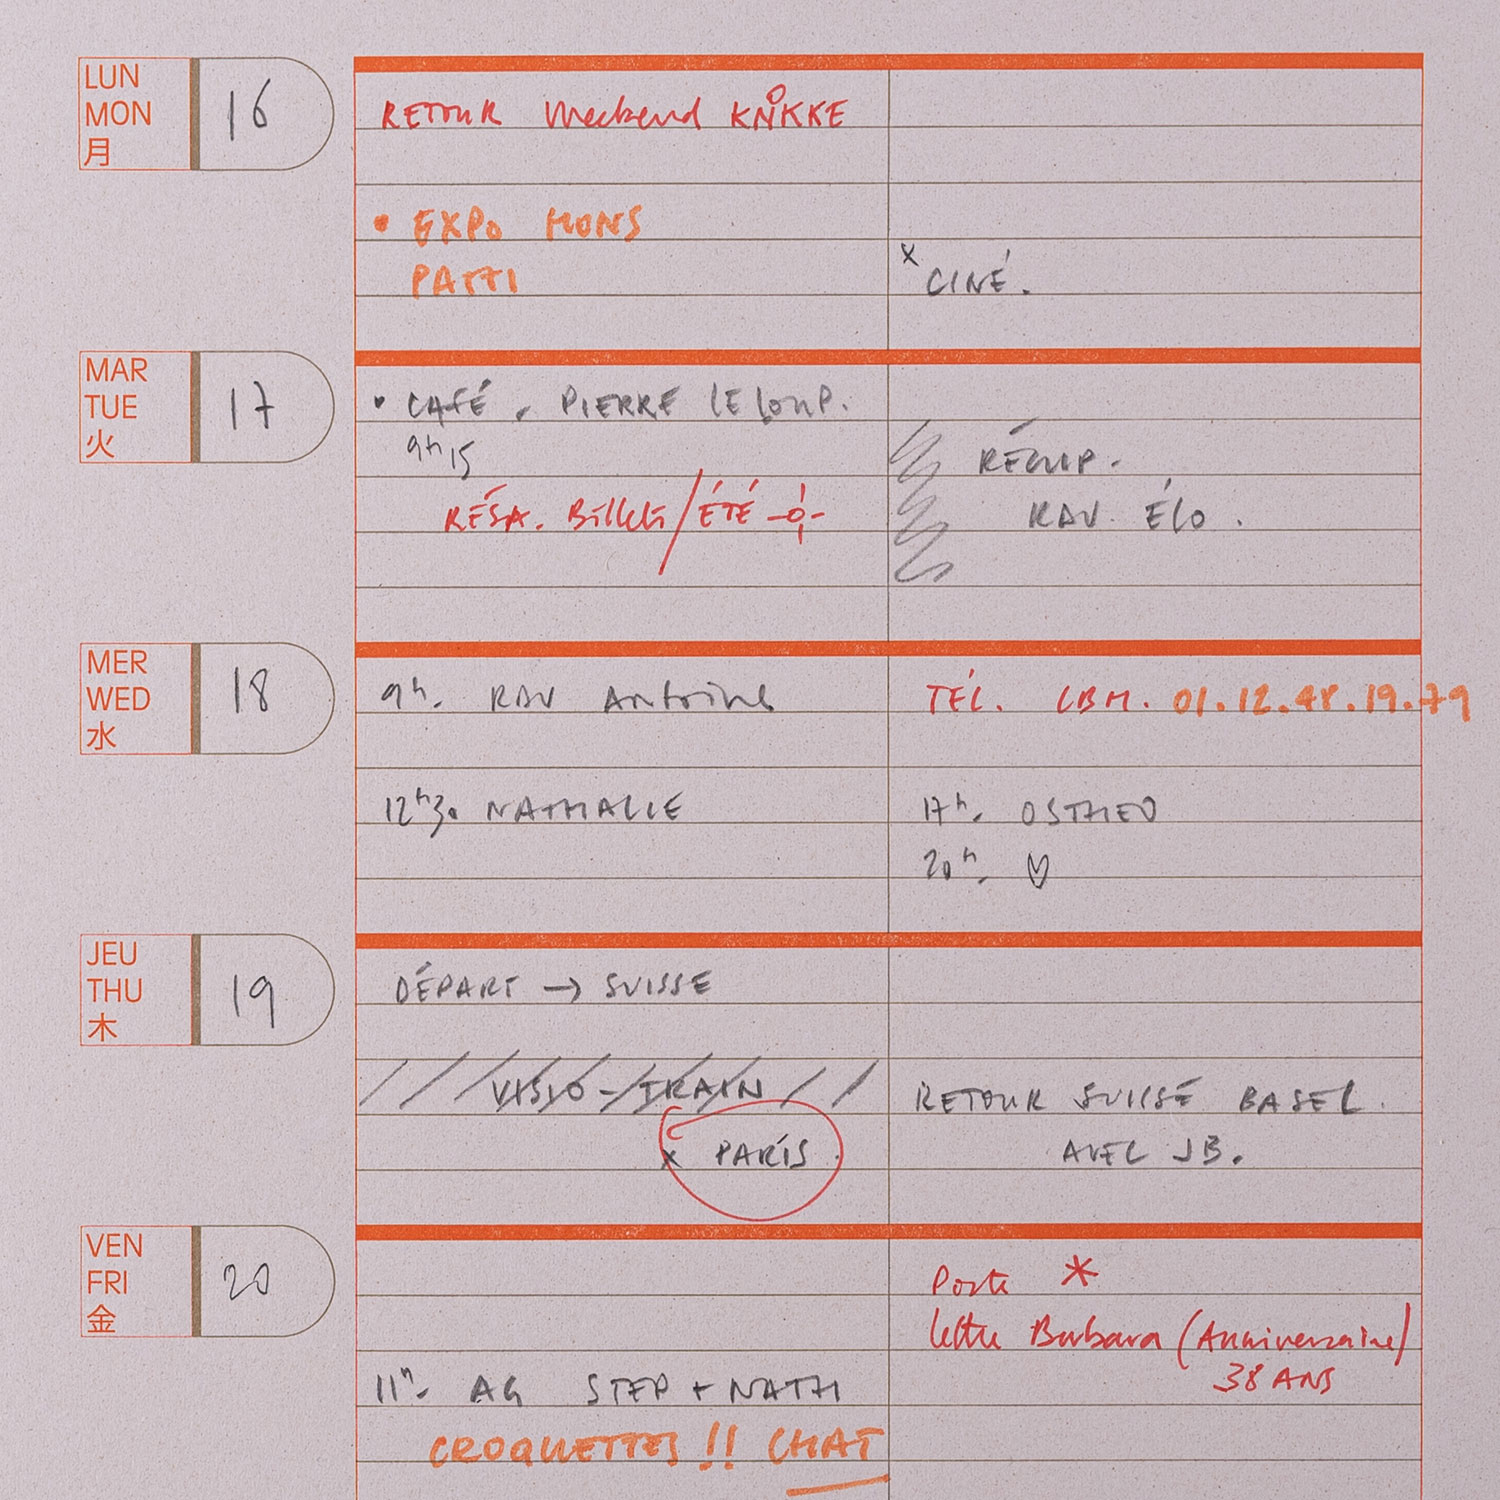 LUN
MON
月
16
RETOUR Weekend KNOKKE
• EXPO MONS
PATTI
x CINÉ.
MAR
TUE
火
17
• CAFÉ. PIERRE LELOUP.
9h15
RÉSA. Billets / ÉTÉ
RÉCUP.
RAV. ÉLO.
MER
WED
水
18
9h. RAV Antoine
TÉL. LBM. 01.12.48.19.79
12h30 NATHALIE
17h. OSTHEO
20h. ♡
JEU
THU
木
19
DÉPART → SUISSE
VISIO - TRAIN
x PARIS.
RETOUR SUISSE BASEL.
AVEC JB.
VEN
FRI
金
20
Poste *
lettre Barbara (Anniversaire)
38 ANS
11h. AG STEP + NATH
CROQUETTES !! CHAT